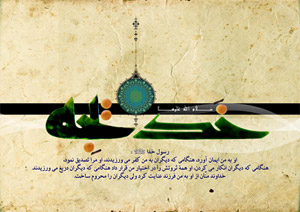 سلام الله علیها
خدیجه
رسول خدا ﷺ :
او به من ایمان آورد، هنگامی که دیگران به من کفر می ورزیدند، او مرا تصدیق نمود،
هنگامی که دیگران انکار می کردن، او همۀ ثروتش را در اختیار من قرار داد هنگامی که دیگران دریغ می ورزیدند .
خداوند منان از او به من فرزند عنایت کرد ولی دیگران را محروم ساخت.